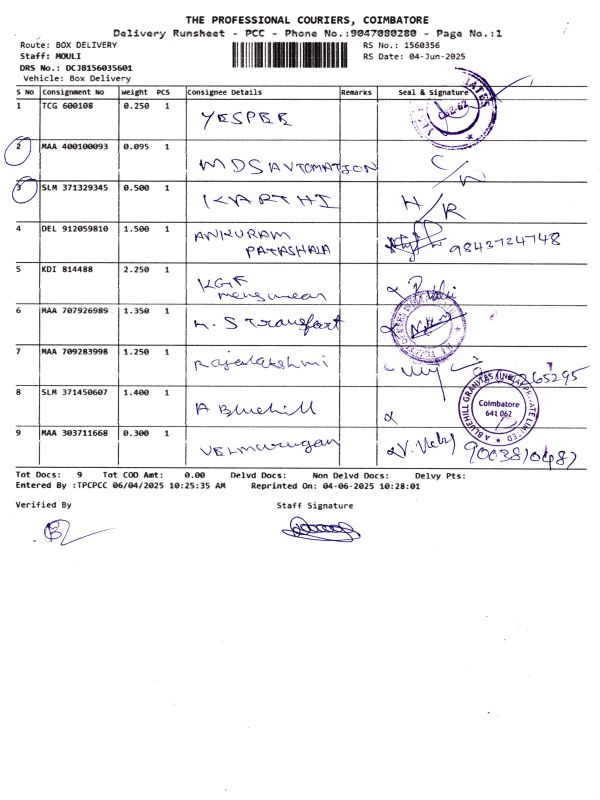 THE PROFESSIONAL COURIERS, COIMBATORE
Delivery Runsheet - PCC - Phone No.:9047080280 - Page No.:1
Route: BOX DELIVERY RS No.: 1560356
Staff: MOULI RS Date: 04-Jun-2025
DRS No.: DCJB156035601
Vehicle: Box Delivery
S NO Consignment No Weight PCS Consignee Details Remarks Seal & Signature
1 TCG 600108 0.250 1 YESPEE
2 MAA 400100093 0.095 1 MDS AUTOMATION C/N
3 SLM 371329345 0.500 1 KARTHI H/R
4 DEL 912059810 1.500 1 ANKURAM PATASHALA 9843724748
5 KDI 814488 2.250 1 KGF menswear
6 MAA 707926989 1.350 1 Transport
7 MAA 709283998 1.250 1 Rajalakshmi 265295
8 SLM 371450607 1.400 1 A Bluehill
A BLUEHILL GRANITES (INDIA) PRIVATE LIMITED
Coimbatore
641 062
9 MAA 303711668 0.300 1 VELMURUGAN
Tot Docs: 9 Tot COD Amt: 0.00 Delvd Docs: Non Delvd Docs: Delvy Pts:
Entered By :TPCPCC 06/04/2025 10:25:35 AM Reprinted On: 04-06-2025 10:28:01
Verified By Staff Signature